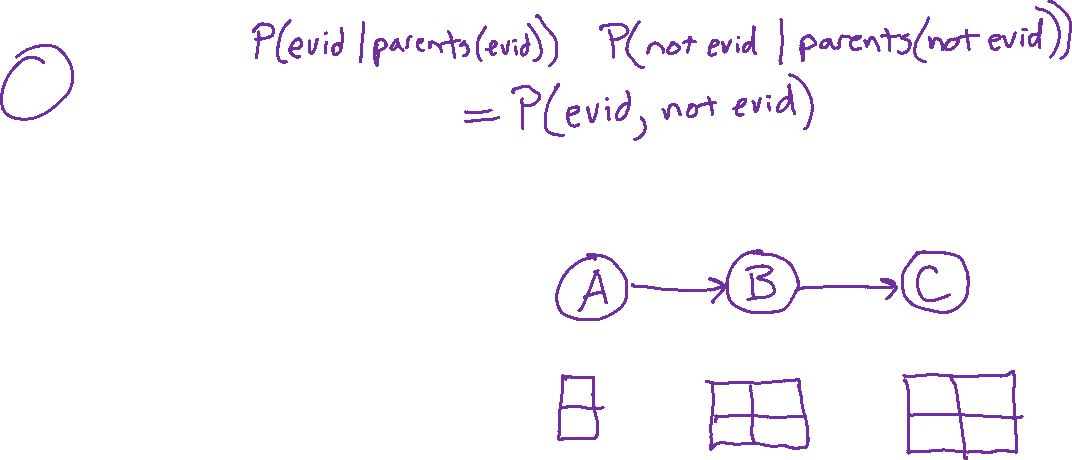 P(evid | parents(evid)) P(not evid | parents(not evid))
= P(evid, not evid)
A B C